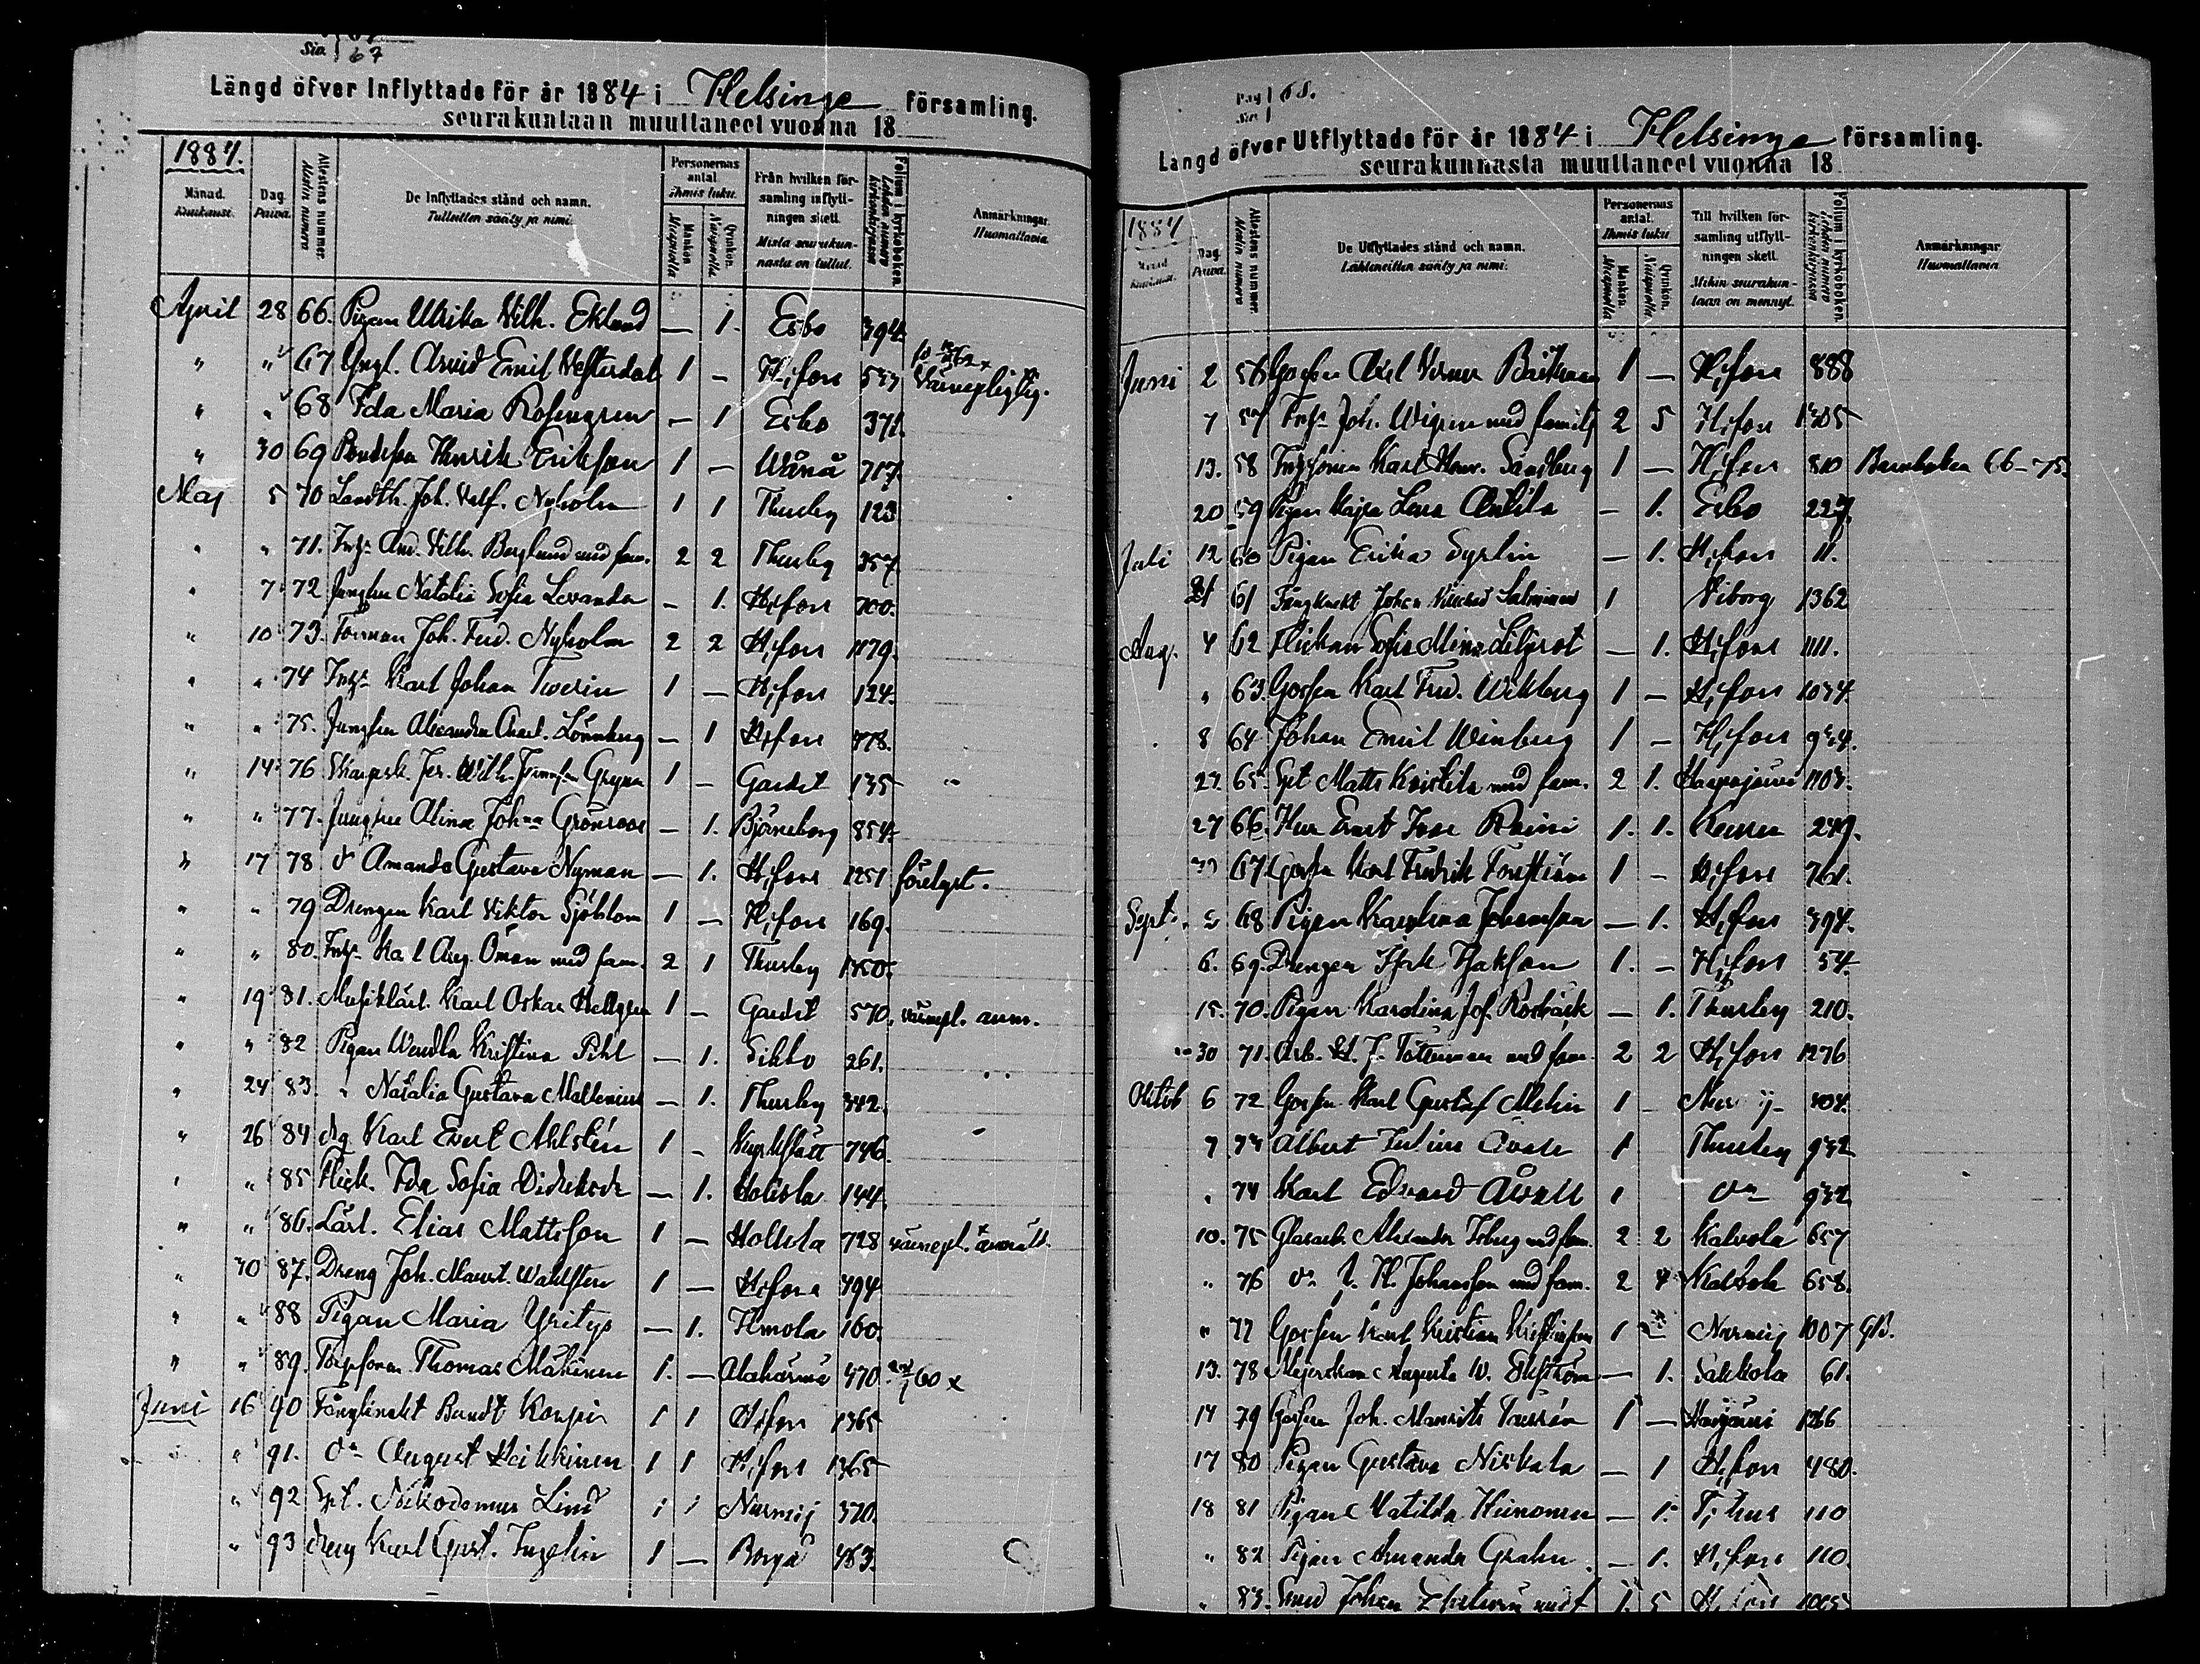 Siv. 67
Längd öfver Inflyttade för år 1884 i Helsinge församling.
seurakuntaan muuttaneet vuonna 18
1884.
Månad. Kuukausi.
Dag. Päivä.
Attestens nummer. Allestin numero
De Inflyttades stånd och namn.
Tulleitten sääty ja nimi.
Personernas antal
Ihmis luku.
Mankön. Miespuolia
Qvinkön. Naispuolia
Från hvilken för-
samling inflytt-
ningen skett.
Mista seurakun-
nasta on tullut.
Folium i kyrkoboken.
Lehden numero kirkonkirjassa
Anmärkningar.
Huomattavia
April 28 66. Pigan Ulrika Wilh. Eklund — 1. Esbo 394.
" " 67 Yngl. Arvid Emil Westerdal 1 — H:fors 533 Värnepligtig.
" " 68 Ida Maria Rosengren — 1 Esbo 371.
" 30 69 Bondeson Henrik Erikson 1 — Wånå 717.
Maj 5 70 Landtb. Joh. Adf. Nyholm 1 1 Thusby 123
" " 71. And. Vilh. Berglund med fam. 2 2 Thusby 357.
" 7 72 Jungfru Natalia Sofia Levander — 1. H:fors 700.
" 10 73. Joh. Fred. Nyholm 2 2 H:fors 1179.
" " 74 Karl Johan Twerin 1 — H:fors 124.
" " 75. Jungfru Alexandra Charl. Lönnberg — 1 H:fors 778.
" 14 76 Wilh. 1 — Gardet 135
" " 77. Jungfru Alina Joh:na Grönroos — 1. Björneborg 854.
" 17 78 d:o Amanda Gustava Nyman — 1. H:fors 1251 förelyst.
" " 79 Drengen Karl Viktor Sjöblom 1 — H:fors 169.
" " 80. Karl Aug. Öman med fam. 2 1 Thusby 1350.
" 19 81. Musiklärl. Karl Oskar Hellgren 1 — Gardet 570. värnepl. anm.
" " 82 Pigan Wendla Kristina Pihl — 1. Sibbo 261.
" 24 83. " Natalia Gustava Mallenius — 1. Thusby 342.
" 26 84 drg Karl Evert Ahlstén 1 — Kyrkslätt 746.
" " 85 Flick. Ida Sofia — 1. Hollola 144.
" " 86. Lärl. Elias Mattsson 1 — Hollola 728 värnepl. anmäld.
" 30 87. Dreng Joh. Maurt. Wahlsten 1 — H:fors 394
" " 88 Pigan Maria Yritys — 1. Iimola 160.
" " 89. Torpsonen Thomas Mäkinen 1. — Alahärmä 470 60 x
Juni 16 90 Fångknekt Bundt 1 1 H:fors 1365
" " 91. d:o August Heikkinen 1 1 H:fors 1365
" 92 Spt. Nikodemus Lind 1 1 Nurmij 370.
" 93 dreng Karl Gust. Ingelin 1 — Borgå 483.
Pag Siv. 68.
Längd öfver Utflyttade för år 1884 i Helsinge församling.
seurakunnasta muuttaneet vuonna 18
1884
Månad. Kuukausi.
Dag. Päivä.
Attestens nummer. Allestin numero
De Utflyttades stånd och namn.
Lähteneitten sääty ja nimi.
Personernas antal.
Ihmis luku
Mankön. Miespuolia
Qvinkön. Naispuolia
Till hvilken för-
samling utflytt-
ningen skett.
Mihin seurakun-
taan on mennyt.
Folium i kyrkoboken.
Lehden numero kirkonkirjassa
Anmärkningar
Huomattavia
Juni 2 56 Gossen Axel Verner 1 — H:fors 888
7 57 Joh. Wigren med familj 2 5 H:fors 1305
13. 58 Karl Henr. Sandberg 1 — H:fors 810 Barnboken 66–75.
20 59 Pigan Kajsa Lena Anttila — 1. Esbo 227.
Juli 12 60 Pigan Erika Syrlin — 1. H:fors 11.
21 61 Fångknekt Johan Salminen 1 Viborg 1362
Aug. 4 62 Flickan Sofia Mina Liljrot — 1. H:fors 1111.
" 63 Gossen Karl Fred. Wikberg 1 — H:fors 1034.
8 64 Johan Emil Winberg 1 — H:fors 934.
23. 65 Spt Matts Koistila med fam. 2 1. Haapajärvi 1103.
27 66. Herr Ernst Ivar Roini 1. 1. 249.
67 Gossen Karl Fredrik Forsström 1 — H:fors 761.
Sept. 68 Pigan Karolina Johansson — 1. H:fors 394.
6. 69. Drengen Isak Isakson 1. — H:fors 54.
15. 70. Pigan Karolina Jos. Rosbäck — 1. Thusby 210.
30 71. Arb. med fam. 2 2 H:fors 1276
Oktob 6 72 Gossen Karl Gustaf Melin 1 — 304.
7 73 Albert Julius 1 Thusby 932
" 74 Karl Edvard 1 d:o 932.
10. 75 Glasarb. Alexander med fam. 2 2 Kalvola 657
" 76 d:o Johansson med fam. 2 4 Kalvola 658.
" 77 Gossen Karl Kristian 1 Nurmij 1007
13. 78 Mejerskan Augusta W. Ekström — 1. Sakkola 61.
14 79 Gossen Joh. Maurits 1 — 1266
17 80 Pigan Gustava Niskala — 1 H:fors 480.
18 81 Pigan Matilda Heinonen — 1. T:hus 110
" 82 Pigan Amanda Grahn — 1. H:fors 110.
" 83. Smed Johan 1. 5 H:fors